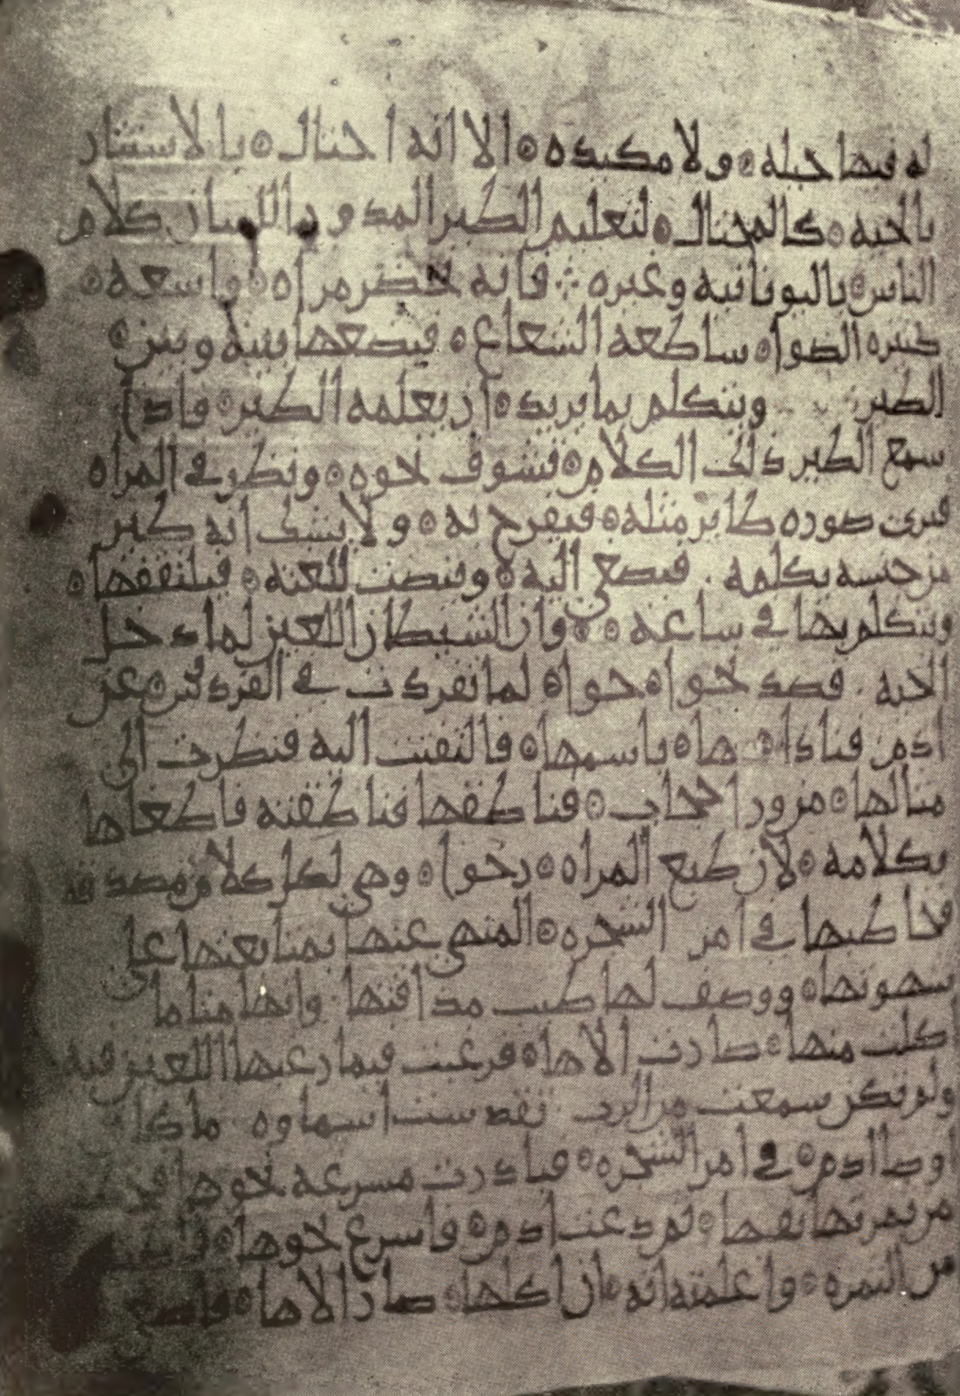 له فيها حيله ولا مكيده الا انه احتال بالاستتار
بالحيه كالمحتال لتعليم الطير المدو باللسان كلام
الناس باليونانيه وغيره فانه تحضر مراه واسعه
كثيره الضوا ساطعه الشعاع فيضعها بينه وبين
الطير ويتكلم بما يريد ان يعلمه الطير فاذا
سمع الطير ذلك الكلام تشوف نحوه ونظر في المراه
فيرى صوره طاير مثله فيفرح به ولا يشك انه طير
من جنسه يكلمه فيصغي اليه وينصت للغته فيلتقفها
ويتكلم بها في ساعه وان الشيطان اللعين لما دخل
الحيه قصد نحوا حوا لما تفردت في الفردوس عن
ادم فناداها باسمها فالتفتت اليه فنظرت الى
مثالها من ورا حجاب فناطقها فناطقته فاطغاها
بكلامه لان طبع المراه رخوا وهي لكل كلام مصدقه
فخاطبها في امر الشجره المنهي عنها بمتابعتها على
شهوتها ووصف لها طيب مذاقتها وانها متاما
كلت منها صارت الاها فرغبت فيما رغبها اللعين فيه
ولم تكن سمعت من الرب تقدست اسماوه ما كان
اوصا ادم في امر الشجره فبادرت مسرعه نحوها
من ثمرتها بفمها ثم دعت ادم فاسرع نحوها
من الثمره واعلمته انه ان اكلها صار الاها